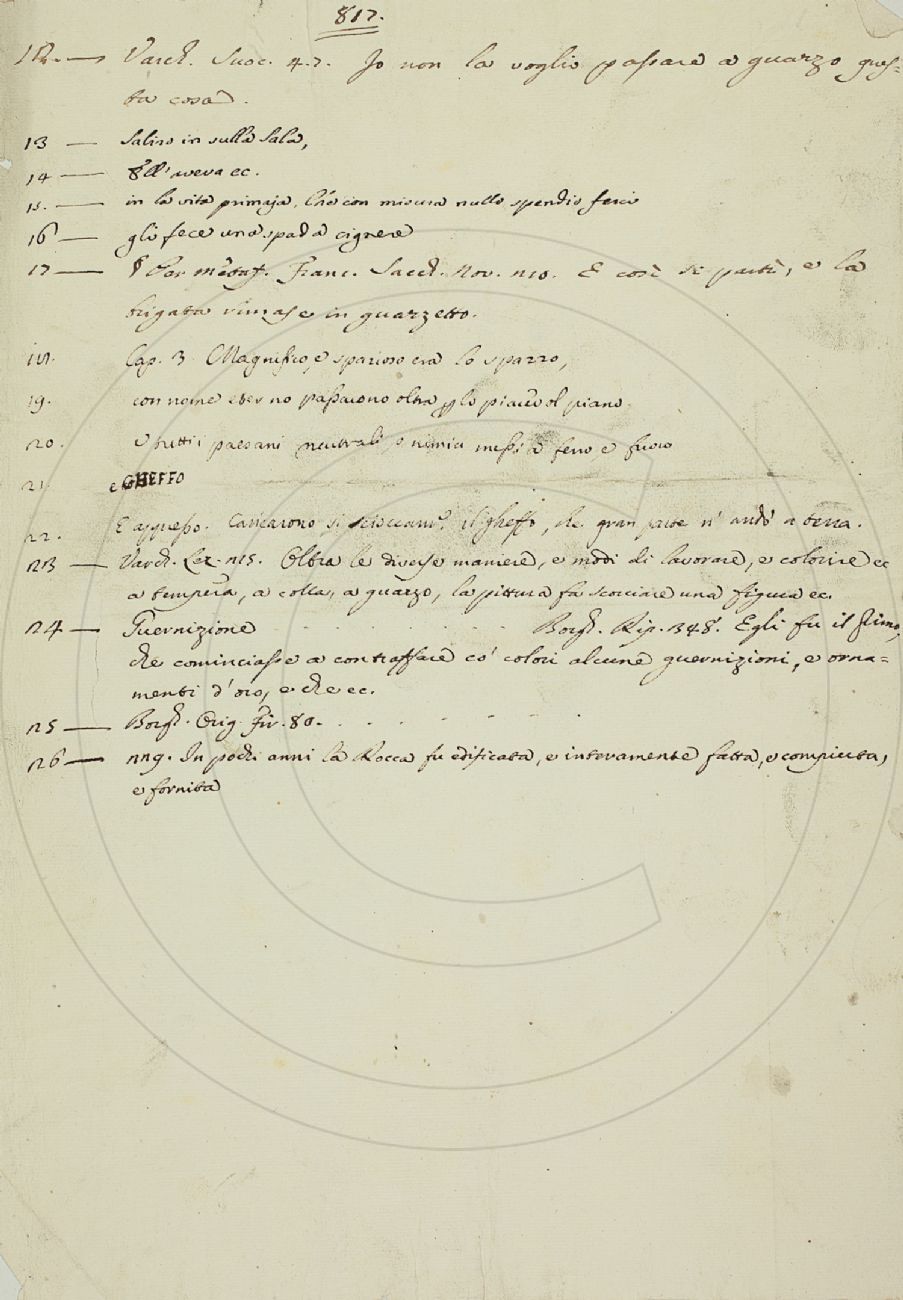 817.
12. — Varch. Suoc. 4. 7. Io non la voglio passare a guazzo ques=
ta cosa.
13 — Saliro in sulla Sala,
14 — Ell'aveva ec.
15. — in la vita primaja, Ch'eo con misura nullo spendio feci
16 — gli fece una spada cignere
17 — § Per metaf. Franc. Sacch. Nov. 110. E così si partì, e la
brigata rimase in guazzetto.
18. Cap. 3. Magnifico, e spazioso era lo spazzo,
19. con neme passarono oltra piacevol piano.
20. e tutti i paesani neutrali o nimici messi a ferro e fuoco
21. e GHEFFO
22. E appresso. Caricarono sì il gheffo, che gran parte n'andò a terra.
23 — Varch. Lez. 215. Oltra le diverse maniere, e modi di lavorare, e colorire ec
a tempera, a colla, a guazzo, la pittura fa scorciare una figura ec.
24 — Guernizione . . . . . . . Borgh. Rip. 348. Egli fu il primo,
che cominciasse a contraffare co' colori alcune guernizioni, e orna=
menti d'oro, e che ec.
25 — Borgh. Orig. Fir. 80. . . . . . .
26 — 229. In pochi anni la Rocca fu edificata, e interamente fatta, e compiuta,
e fornita